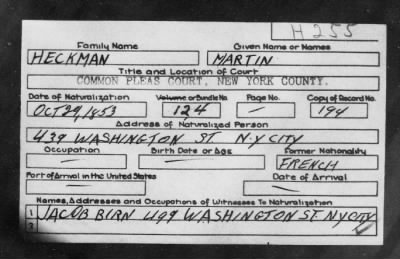 H 255
Family Name Given Name or Names
HECKMAN MARTIN
Title and Location of Court
COMMON PLEAS COURT, NEW YORK COUNTY.
Date of Naturalization Volume or Bundle No. Page No. Copy of Record No.
OCT 29, 1853 124 — 194
Address of Naturalized Person
439 WASHINGTON ST N.Y CITY
Occupation Birth Date or Age Former Nationality
— — FRENCH
Port of Arrival in the United States Date of Arrival
— —
Names, Addresses and Occupations of Witnesses To Naturalization
1 JACOB BIRN 499 WASHINGTON ST. NY CITY
2